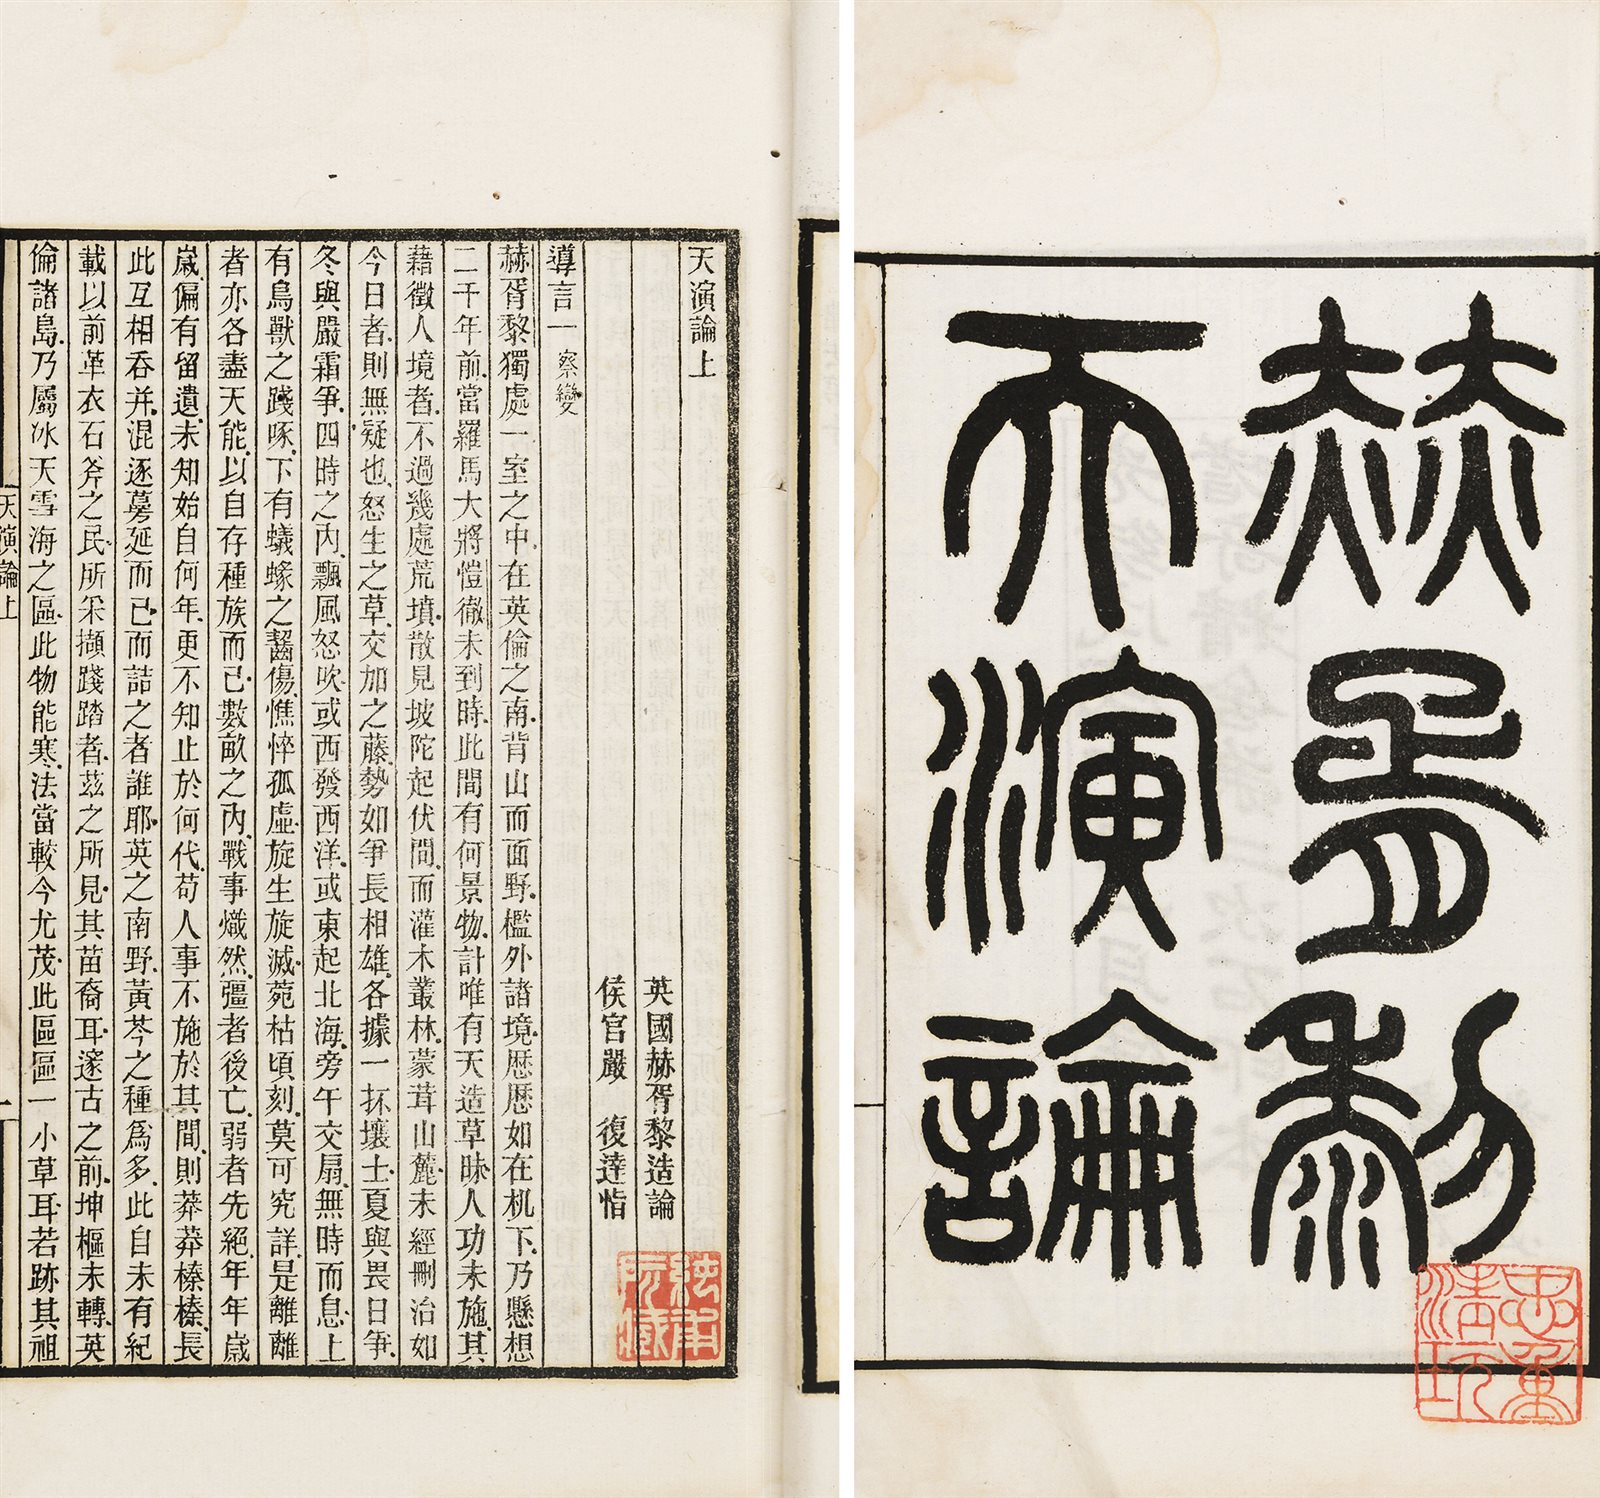 赫胥黎
天演論
天演論上
英國赫胥黎造論
侯官嚴 復達恉
導言一 察變
赫胥黎獨處一室之中、在英倫之南、背山而面野、檻外諸境、歷歷如在机下、乃懸想
二千年前、當羅馬大將愷徹未到時、此間有何景物、計唯有天造草昧、人功未施、其
藉徵人境者、不過幾處荒墳、散見坡陀起伏間、而灌木叢林、蒙茸山麓、未經刪治如
今日者、則無疑也、怒生之草、交加之藤、勢如爭長相雄、各據一抔壤土、夏與畏日爭、
冬與嚴霜爭、四時之內、飄風怒吹、或西發西洋、或東起北海、旁午交扇、無時而息、上
有鳥獸之踐啄、下有蟻蝝之齧傷、憔悴孤虛、旋生旋滅、菀枯頃刻、莫可究詳、是離離
者亦各盡天能、以自存種族而已、數畝之內、戰事熾然、彊者後亡、弱者先絕、年年歲
歲、偏有留遺、未知始自何年、更不知止於何代、苟人事不施於其間、則莽莽榛榛、長
此互相吞并、混逐蔓延而已、而詰之者誰耶、英之南野、黃芩之種爲多、此自未有紀
載以前、革衣石斧之民、所采擷踐踏者、茲之所見、其苗裔耳、邃古之前、坤樞未轉、英
倫諸島、乃屬冰天雪海之區、此物能寒、法當較今尤茂、此區區一小草耳、若跡其祖
天演論上 一